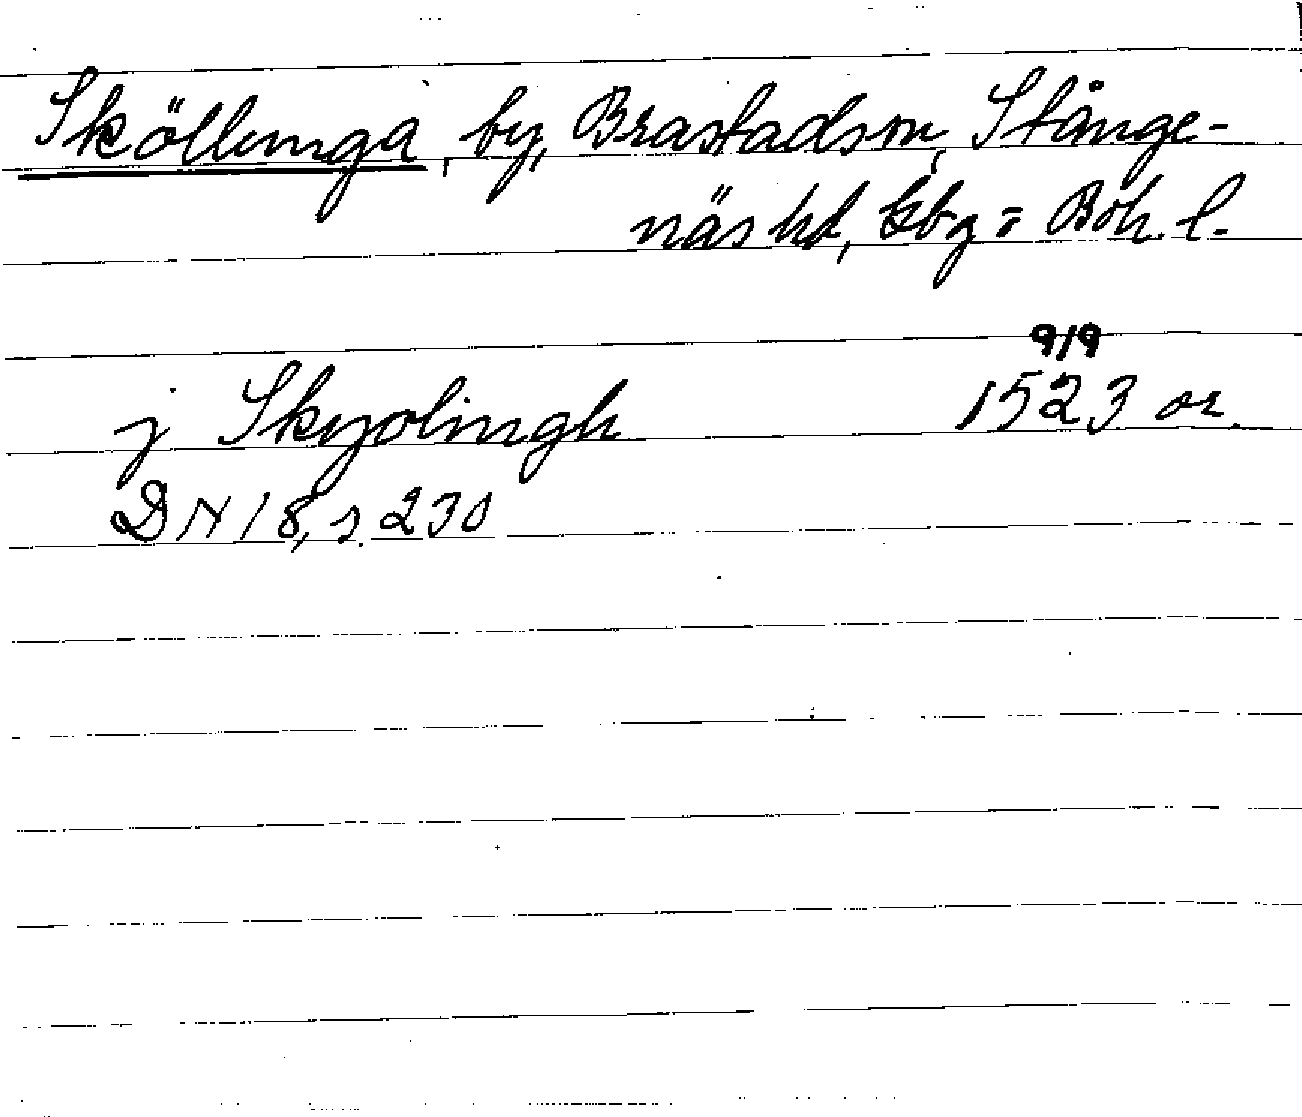 Sköllunga, by, Brastads sn, Stånge-
näs hd, Gbg o Boh. l.
9/9
j Skyolingh 1523 or.
DN 18, s. 230